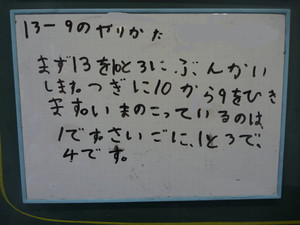 13-9のやりかた
まず13を10と3に ぶんかい
します。つぎに10から9をひき
ます。いまのこっているのは、
1です。さいごに、1と3で、
4です。